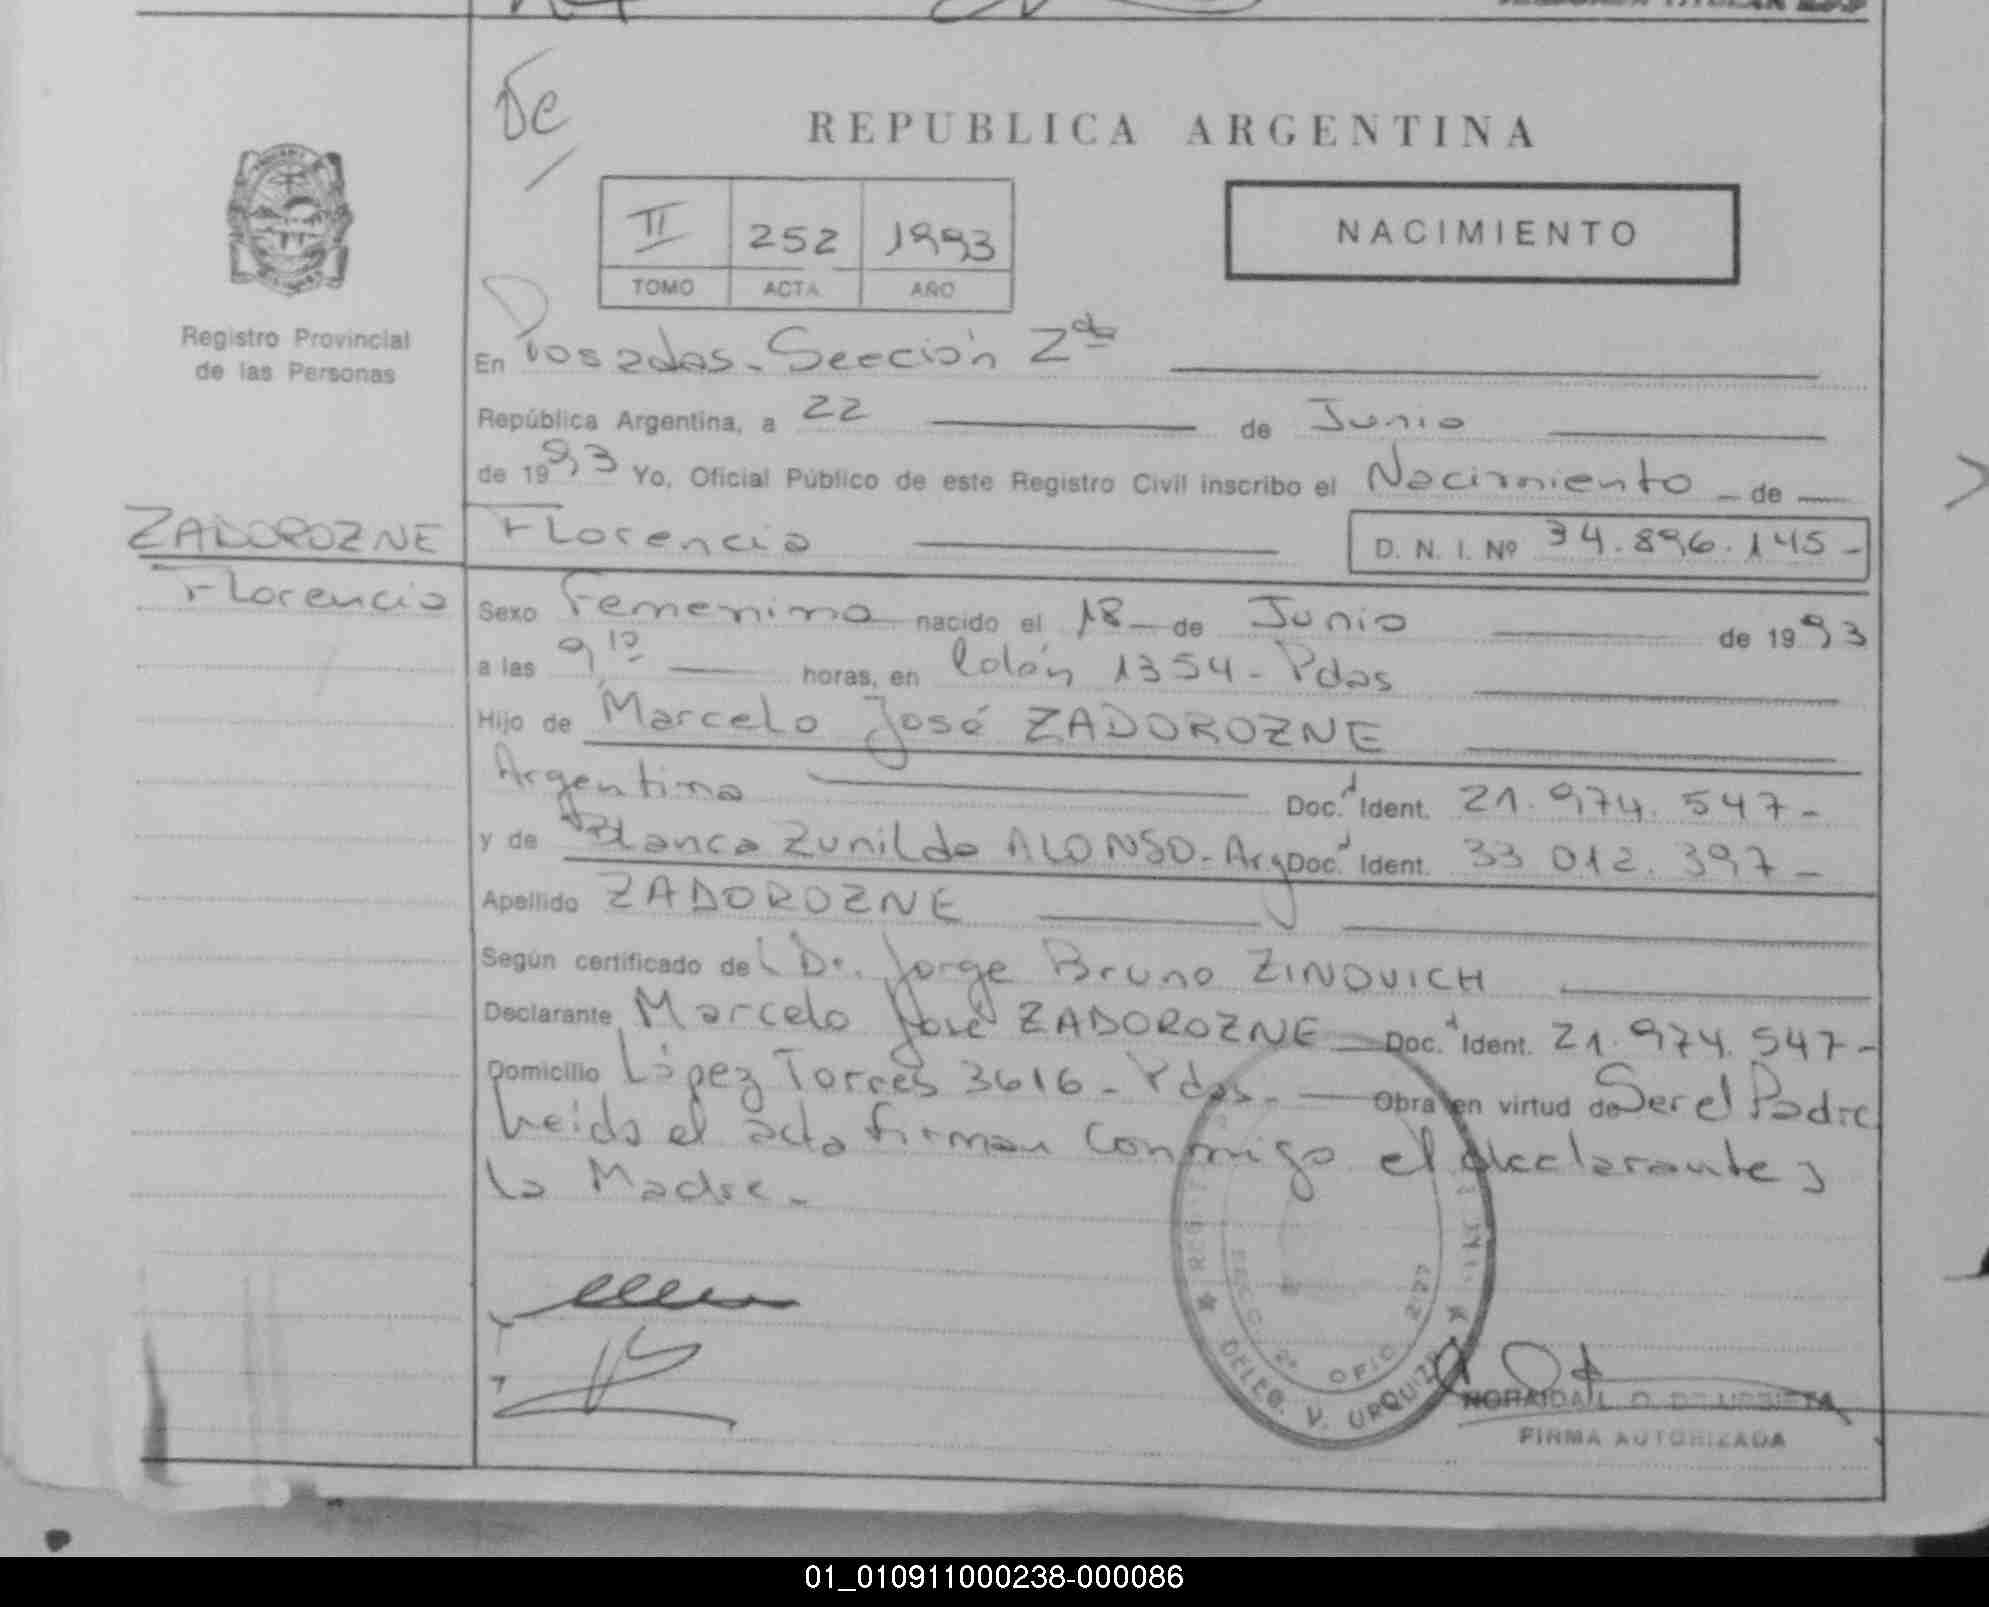 De
REPUBLICA ARGENTINA
II 252 1993
TOMO ACTA AÑO
NACIMIENTO
Registro Provincial
de las Personas
En Posadas - Sección 2da
República Argentina, a 22 de Junio
de 1993 Yo, Oficial Público de este Registro Civil inscribo el Nacimiento - de
ZADOROZNE
Florencia
Florencia D. N. I. Nº 34.896.145-
Sexo Femenino nacido el 18 - de Junio de 1993
a las 9,10 horas, en Colón 1354 - Pdas
Hijo de Marcelo José ZADOROZNE
Argentino Doc. Ident. 21.974.547-
y de Blanca Zunilda ALONSO - Arg Doc. Ident. 33 012.397-
Apellido ZADOROZNE
Según certificado del Dr. Jorge Bruno ZINOVICH
Declarante Marcelo José ZADOROZNE Doc. Ident. 21.974.547-
Domicilio López Torres 3616 - Pdas. - Obra en virtud de Ser el Padre
Leida el acta firman conmigo el declarante y
la Madre. -
SECC. 2º OFIC.
DELEG. V. URQUIZA
FIRMA AUTORIZADA
01_010911000238-000086